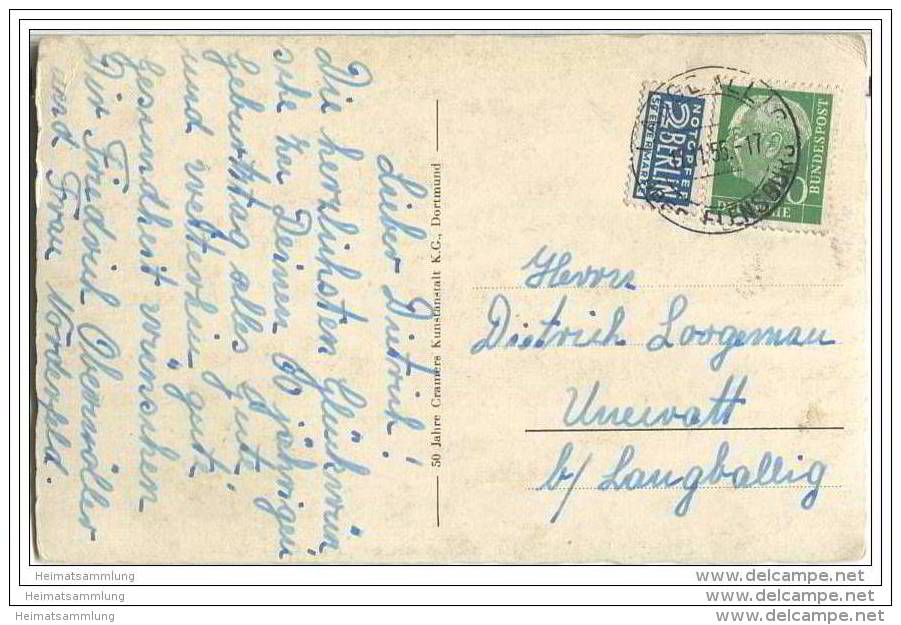 Lieber Dietrich!
Die herzlichsten Glückwün
sche zu Deinen 60 jährigen
Geburtstag alles gute
und weiterhin gute
Gesundheit wünschen
Dir Friedrich Obermöller
und Frau Nörderfeld.
50 Jahre Cramers Kunstanstalt K.G., Dortmund
NOTOPFER
2 BERLIN
STEUERMARKE
DEUTSCHE
BUNDESPOST
FLENSBURG
Herrn
Dietrich Loogeman
Unewatt
b/ Langballig
Heimatsammlung
Heimatsammlung
Heimatsammlung
delcampe.net
delcampe.net
delcampe.net